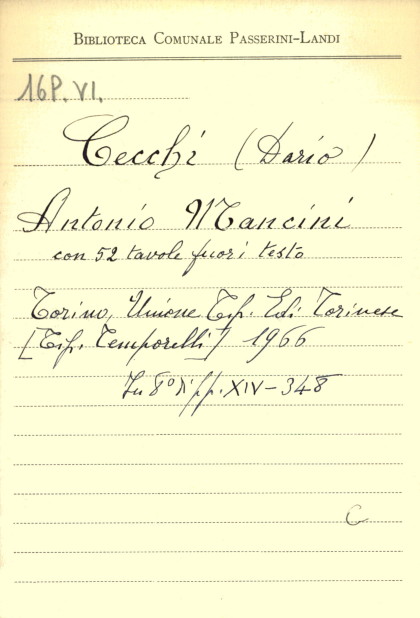 BIBLIOTECA COMUNALE PASSERINI-LANDI
16P. VI.
Cecchi (Dario)
Antonio Mancini
con 52 tavole fuori testo
Torino, Unione Tip. Edi Torinese
[Tip. Temporelli] 1966
In 8° di pp. XIV-348
C